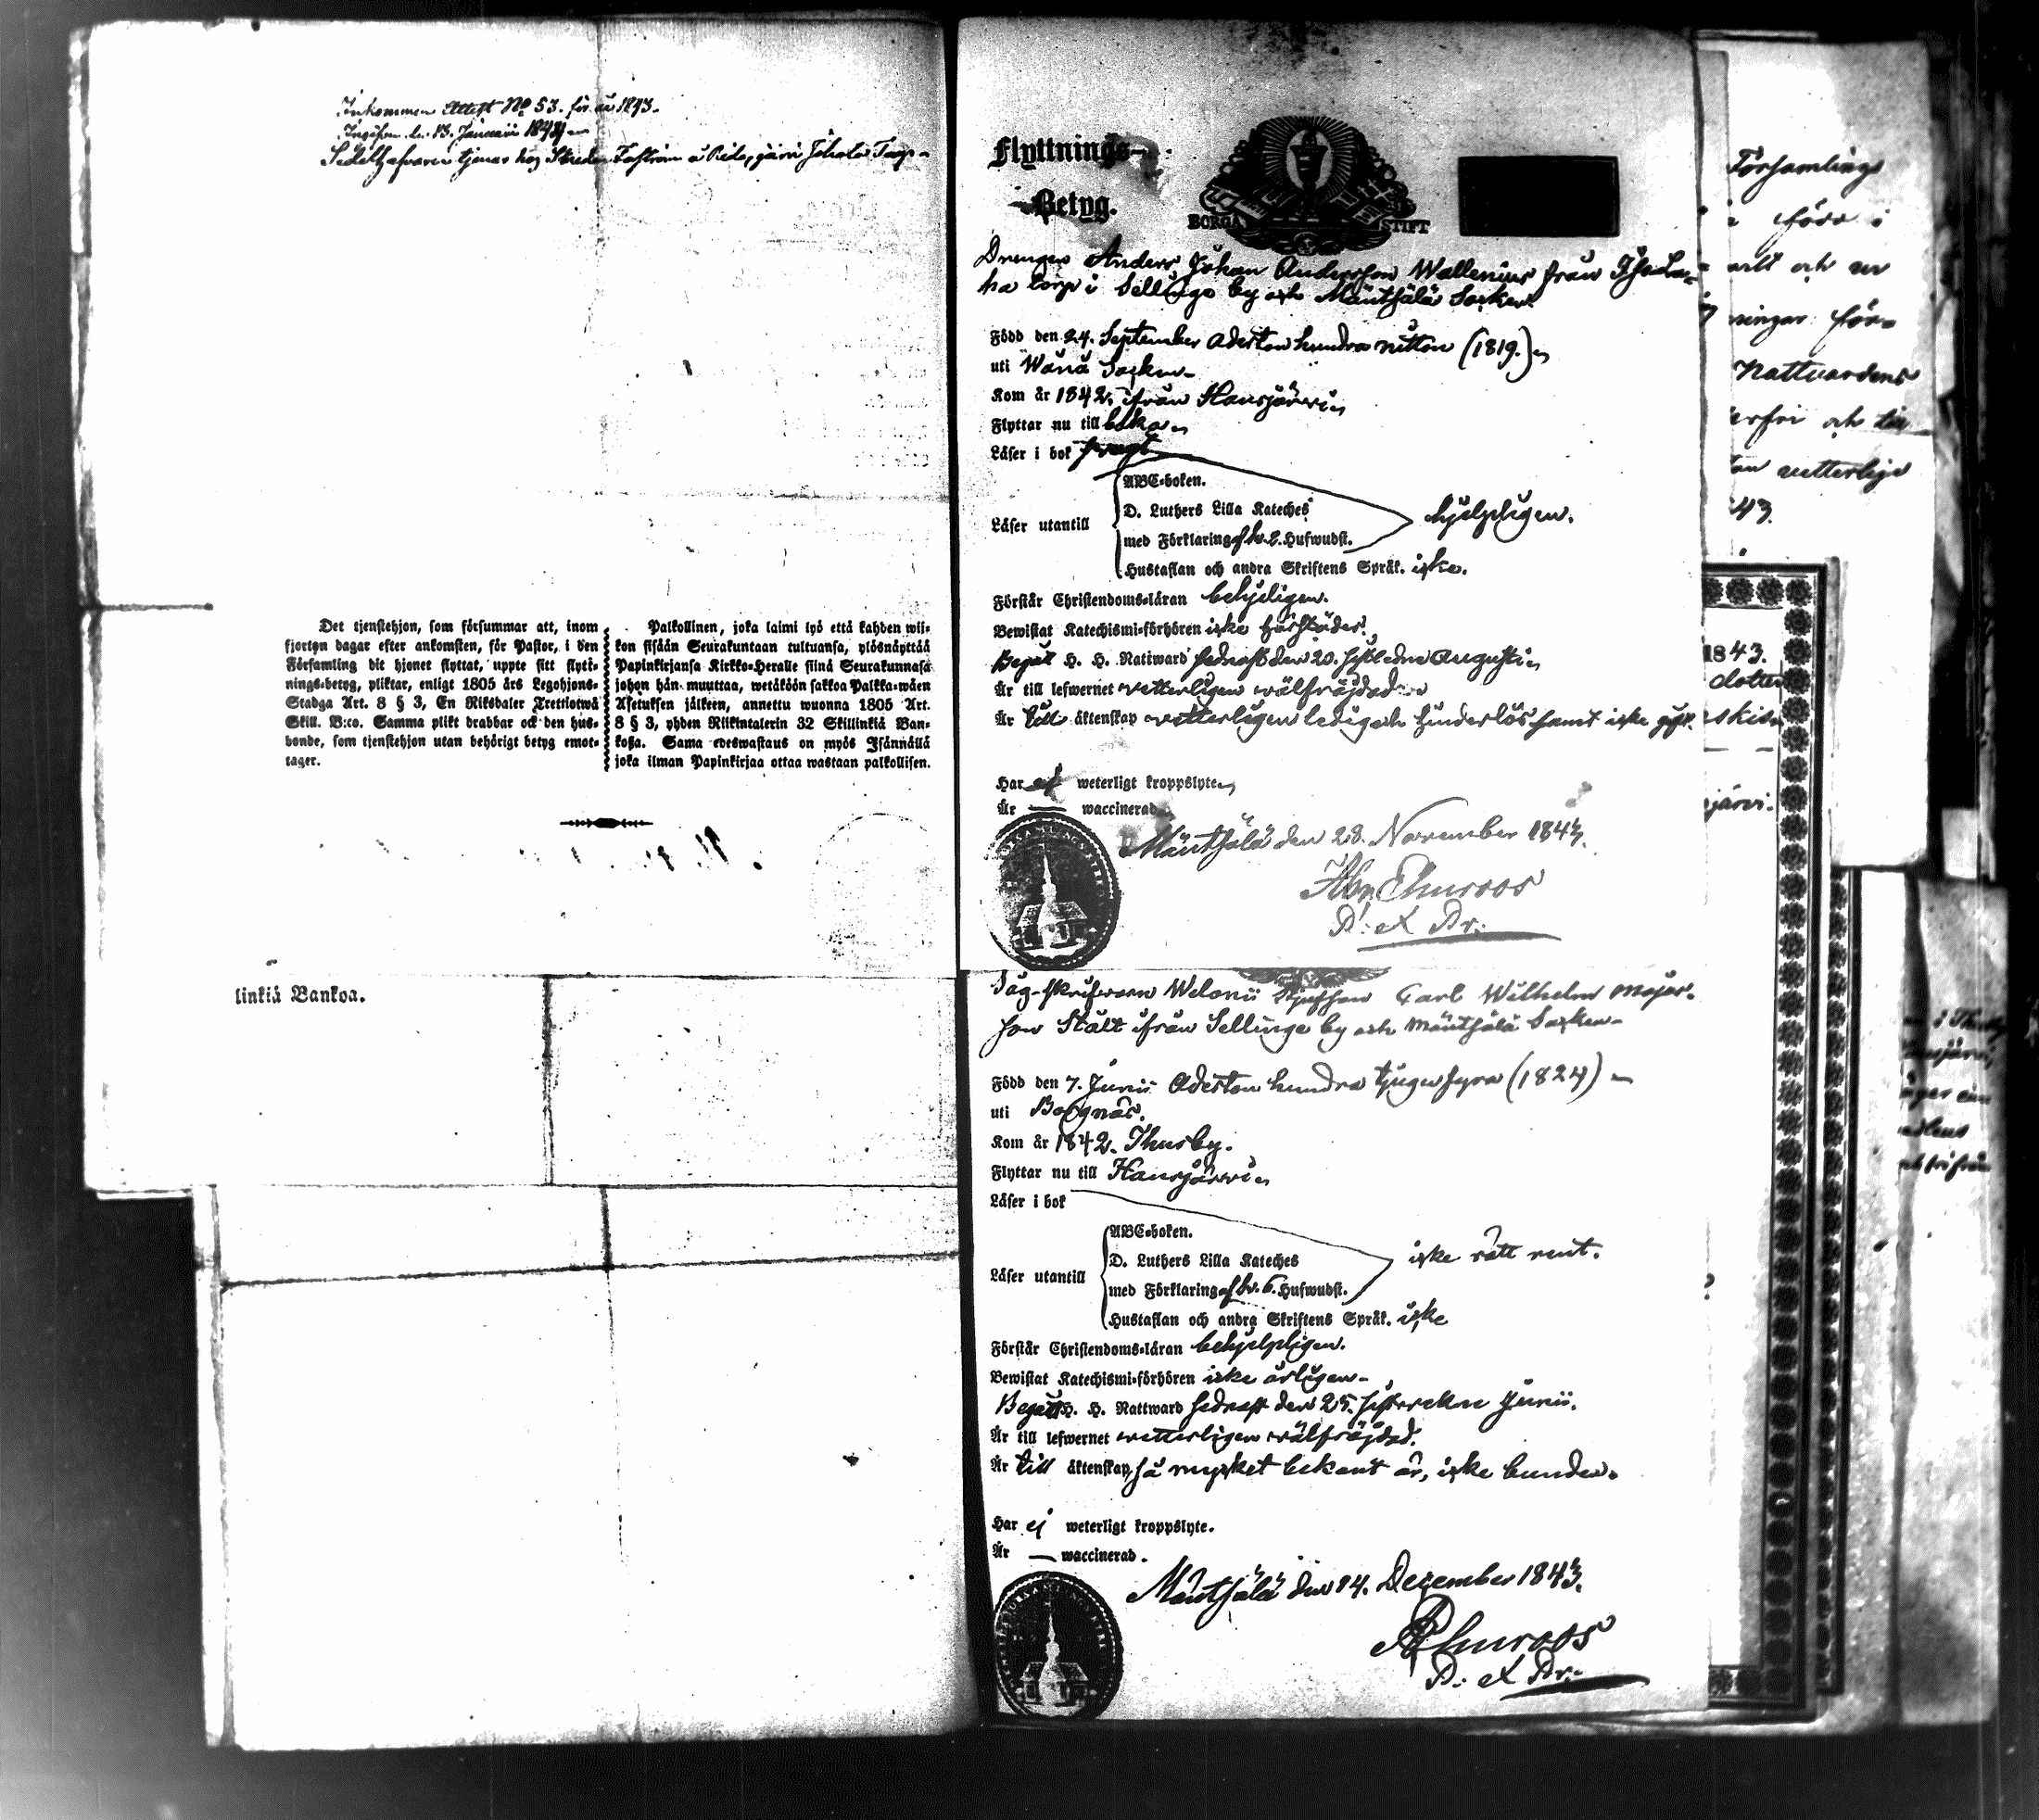 Inkommen Attest No 53. för år 1843.
d. 13. Januarii 1844
tjenar hos
Det tjenstehjon, som försummar att, inom
fjorton dagar efter ankomsten, för Pastor, i den
Församling dit hjonet flyttat, uppte sitt flytt-
nings-betyg, pliktar, enligt 1805 års Legohjons-
Stadga Art. 8 § 3, En Riksdaler Trettiotwå
Skill. B:co. Samma plikt drabbar ock den hus-
bonde, som tjenstehjon utan behörigt betyg emot-
tager.
Palkollinen, joka laimi lyö että kahden wii-
kon sisään Seurakuntaan tultuansa, ylösnäyttää
Papinkirjansa Kirkko-Heralle siinä Seurakunnasa
johon hän muuttaa, wetäköön sakkoa Palkka-wäen
Asetuksen jälkeen, annettu wuonna 1805 Art.
8 § 3, yhden Riikintalerin 32 Skillinkiä Ban-
kosa. Sama edeswastaus on myös Isännällä
joka ilman Papinkirjaa ottaa wastaan palkollisen.
linkiä Bankoa.
Flyttnings-
Betyg.
BORGÅ STIFT
Drengen Anders Johan Andersson Wallenius från
ha torp i Sellinge by och Mäntsälä Socken.
Född den 24. September Aderton hundra nitton (1819.)
uti Wånå Socken
Kom år 1842. ifrån Hausjärvi
Flyttar nu till
Läser i bok svagt
ABC-boken.
D. Luthers Lilla Kateches
Läser utantill
hjelpligen.
med Förklaring af hw. 2. Hufwudst.
Hustaflan och andra Skriftens Språk. icke.
Förstår Christendoms-läran behjeligen.
Bewistat Katechismi-förhören icke
Begått H. H. Nattward sednast den 20. sistledne Augusti
Är till lefwernet vetterligen wälfräjdad
Är till äktenskap vetterligen ledig och hinderlös samt icke gift.
Har ej weterligt kroppslyte
Är — waccinerad
Mäntsälä den 28. November 1843.
Abr. Elmroos
P. et Pr.
Såg-skrifvaren Carl Wilhelm Majors-
son Stålt ifrån Sellinge by och Mäntsälä Socken
Född den 7. Junii Aderton hundra tjugu fyra (1824)
uti Borgnäs.
Kom år 1842. Thusby.
Flyttar nu till Hausjärvi
Läser i bok
ABC-boken.
D. Luthers Lilla Kateches
icke rätt rent.
Läser utantill
med Förklaring af hw. 6. Hufwudst.
Hustaflan och andra Skriftens Språk. icke
Förstår Christendoms-läran behjelpligen.
Bewistat Katechismi-förhören icke årligen
Begått H. H. Nattward sednast den 25. Junii.
Är till lefwernet vetterligen wälfräjdad.
Är till äktenskap så mycket bekant är, icke bunden.
Har ej weterligt kroppslyte.
Är — waccinerad.
Mäntsälä den 14. December 1843.
Elmroos
P. et Pr.
Församlings
född i
och
Nattvardens
och
vetterlige
43.
1843.
dotter
järvi.